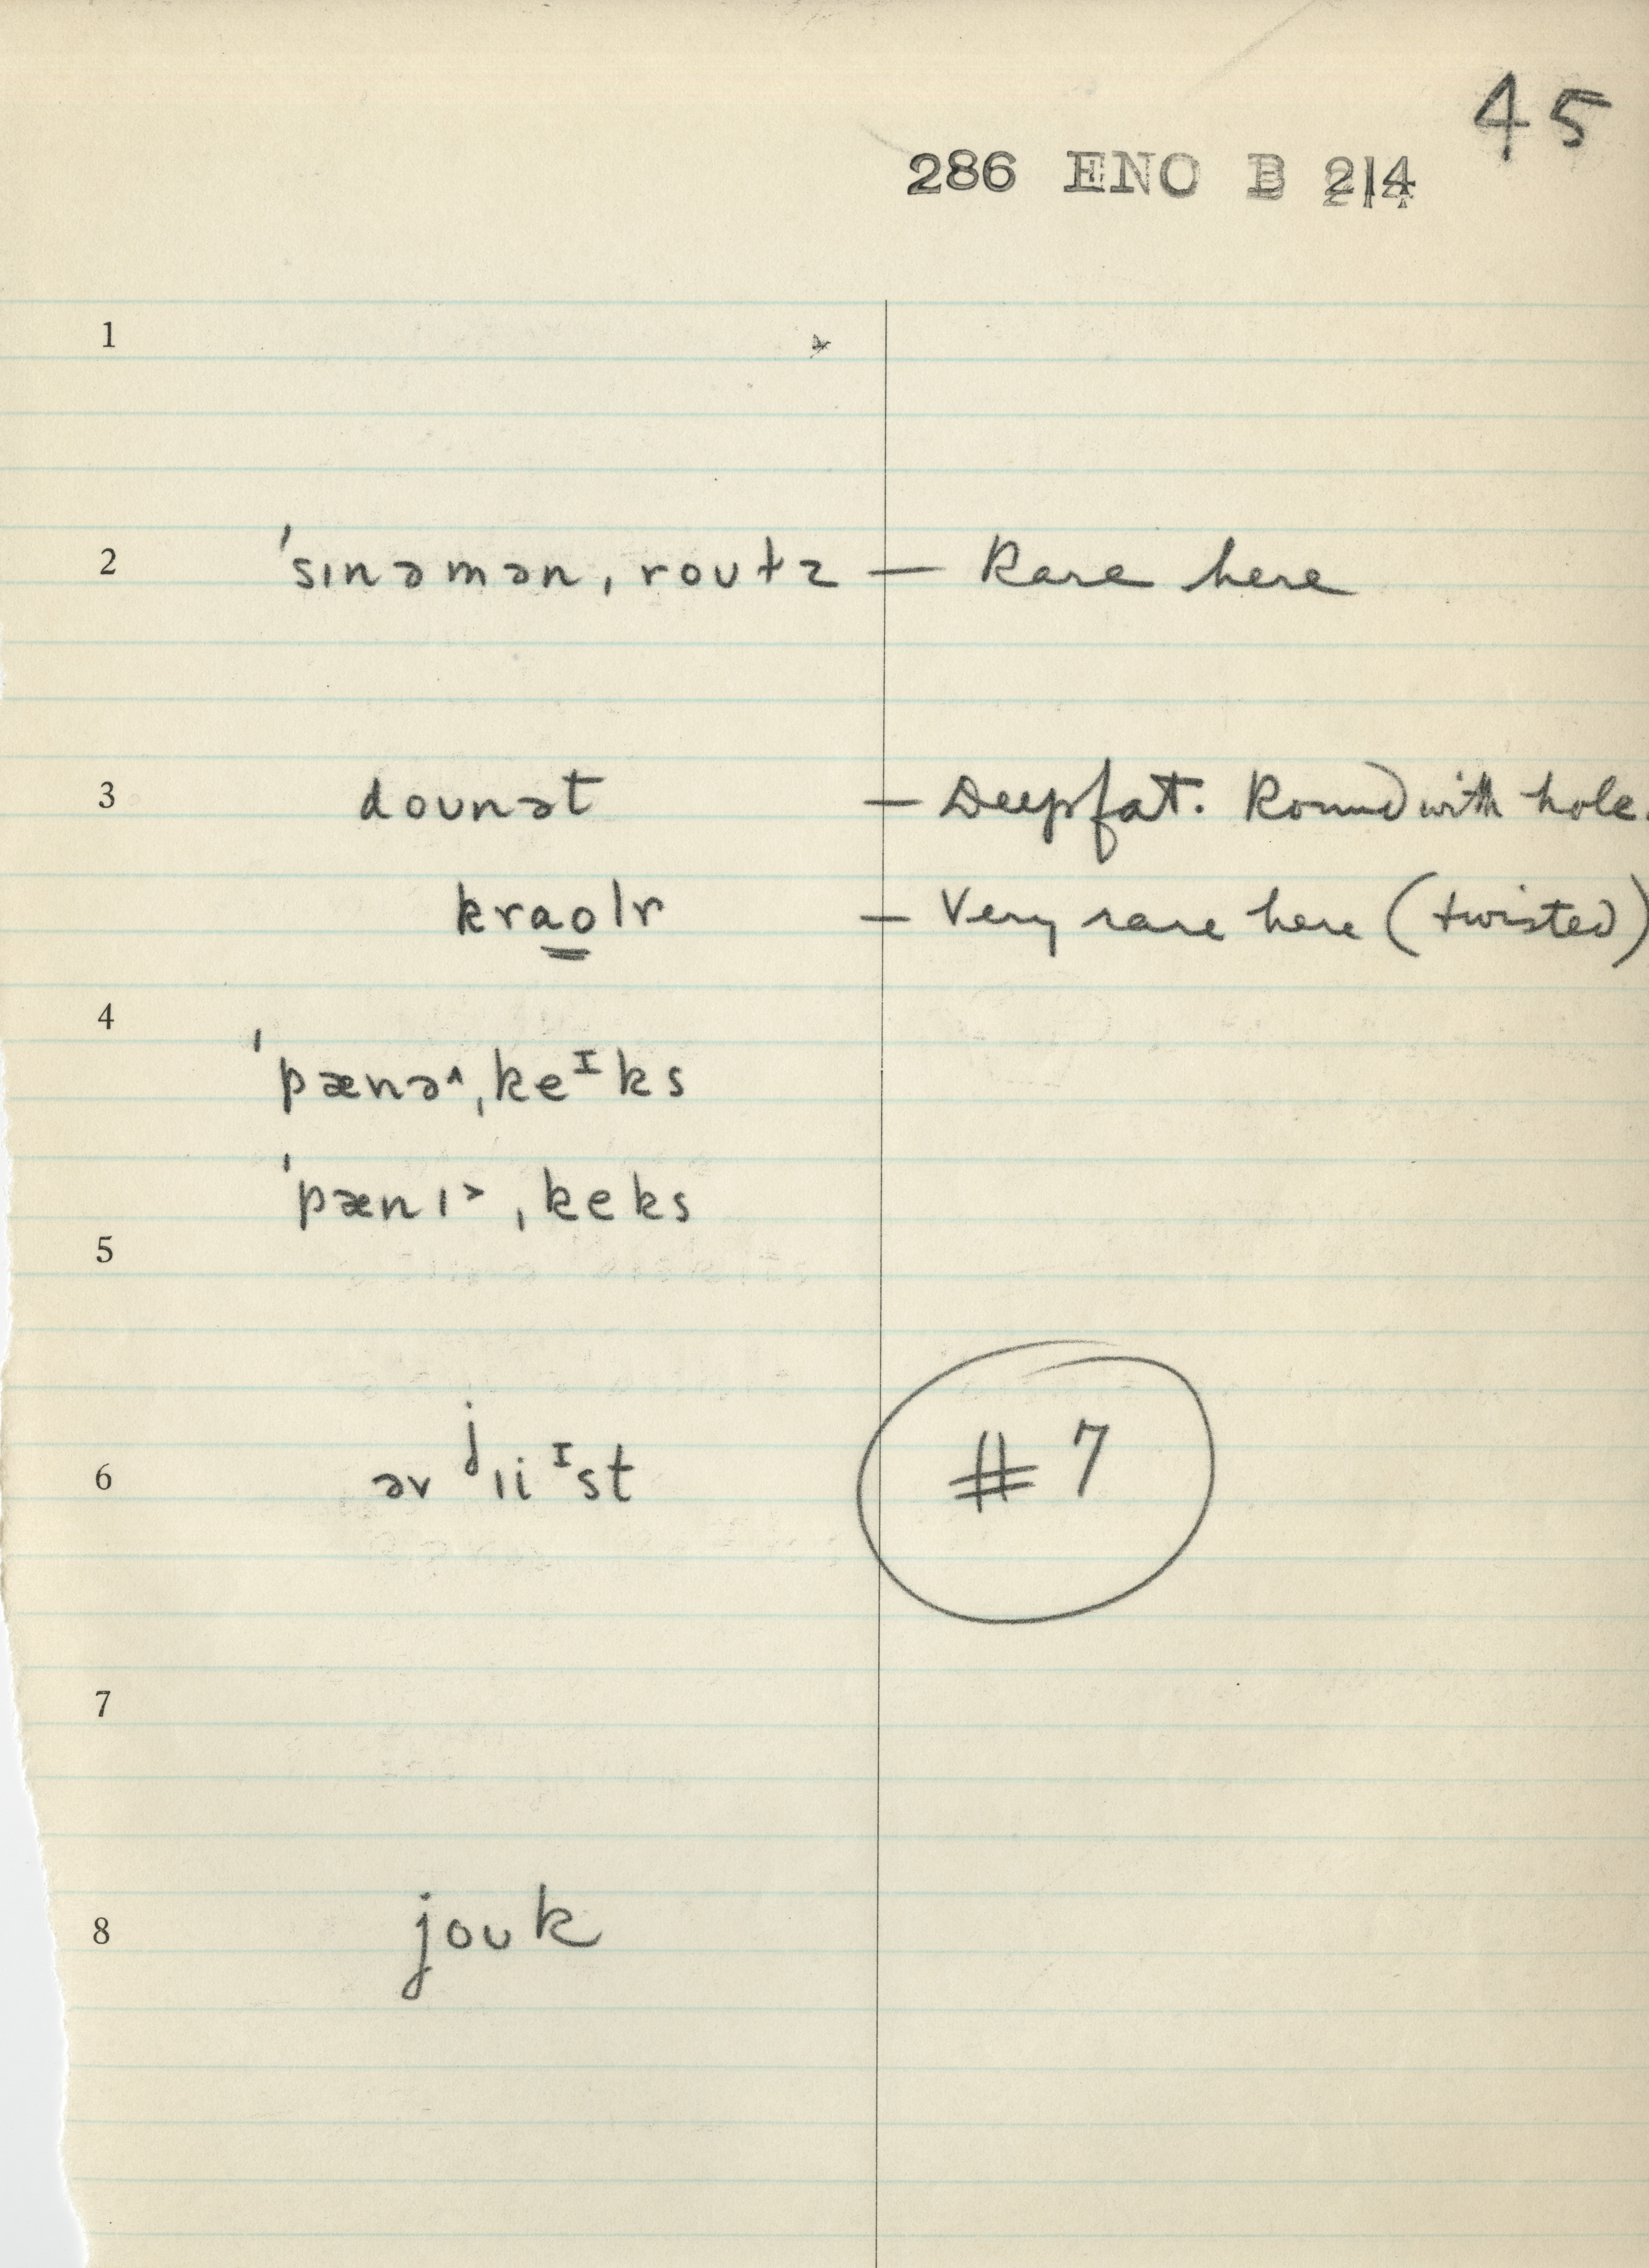 45
286 ENO B 214
1
2 ˈsɪnəmən ˌroutz — Rare here
3 dounət — Deepfat. Round with hole.
kraolr — Very rare here (twisted)
4
ˈpænə^ ˌkeᴵks
ˈpænɪ> ˌkeks
5
6 əv ʲɪiᴵst #7
7
8 jouk